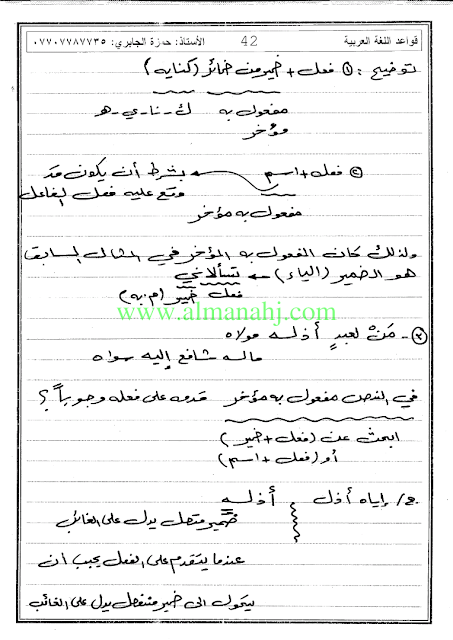 قواعد اللغة العربية 42 الأستاذ: حمزة الجابري: ٠٧٧٠٧٧٨٧٧٣٥
توضيح: ① فعل + ضمير من ضمائر (كنايه)
مفعول به ك - نا - ي - هـ
مؤخر
② فعل + اسم بشرط أن يكون قد
وقع عليه فعل الفاعل
مفعول به مؤخر
ولذلك كان المفعول به المؤخر في المثال السابق
هو الضمير (الياء) ← تسألاني
فعل ضمير (م.به)
www.almanahj.com
٢- مَنْ لعبدٍ أذله مولاه
ماله شافع إليه سواه
في النص مفعول به مؤخر قدمه على فعله وجوباً؟
ابحث عن (فعل + ضمير)
أو (فعل + اسم)
ج/ إياه أذل أذله
ضمير متصل يدل على الغائب
عندما يتقدم على الفعل يجب أن
يتحول الى ضمير منفصل يدل على الغائب